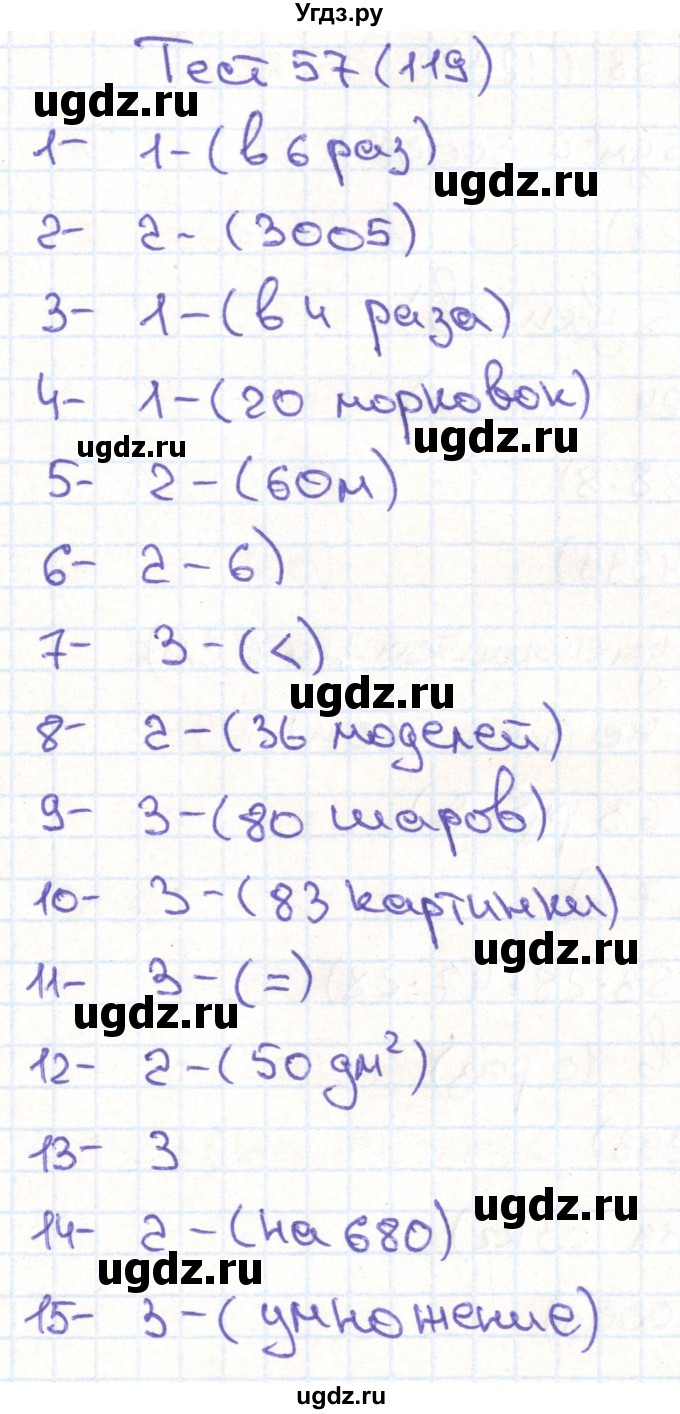 Угдз.ру
Тест 57 (119)
ugdz.ru
1- 1- (в 6 раз)
ugdz.ru
2- 2- (3005)
3- 1- (в 4 раза)
4- 1- (20 морковок)
ugdz.ru
ugdz.ru
5- 2- (60м)
6- 2- 6)
7- 3- (<)
ugdz.ru
8- 2- (36 моделей)
9- 3- (80 шаров)
10- 3- (83 картинки)
ugdz.ru
11- 3- (=)
ugdz.ru
12- 2- (50 дм²)
13- 3
ugdz.ru
14- 2- (на 680)
ugdz.ru
15- 3- (умножение)
ugdz.ru